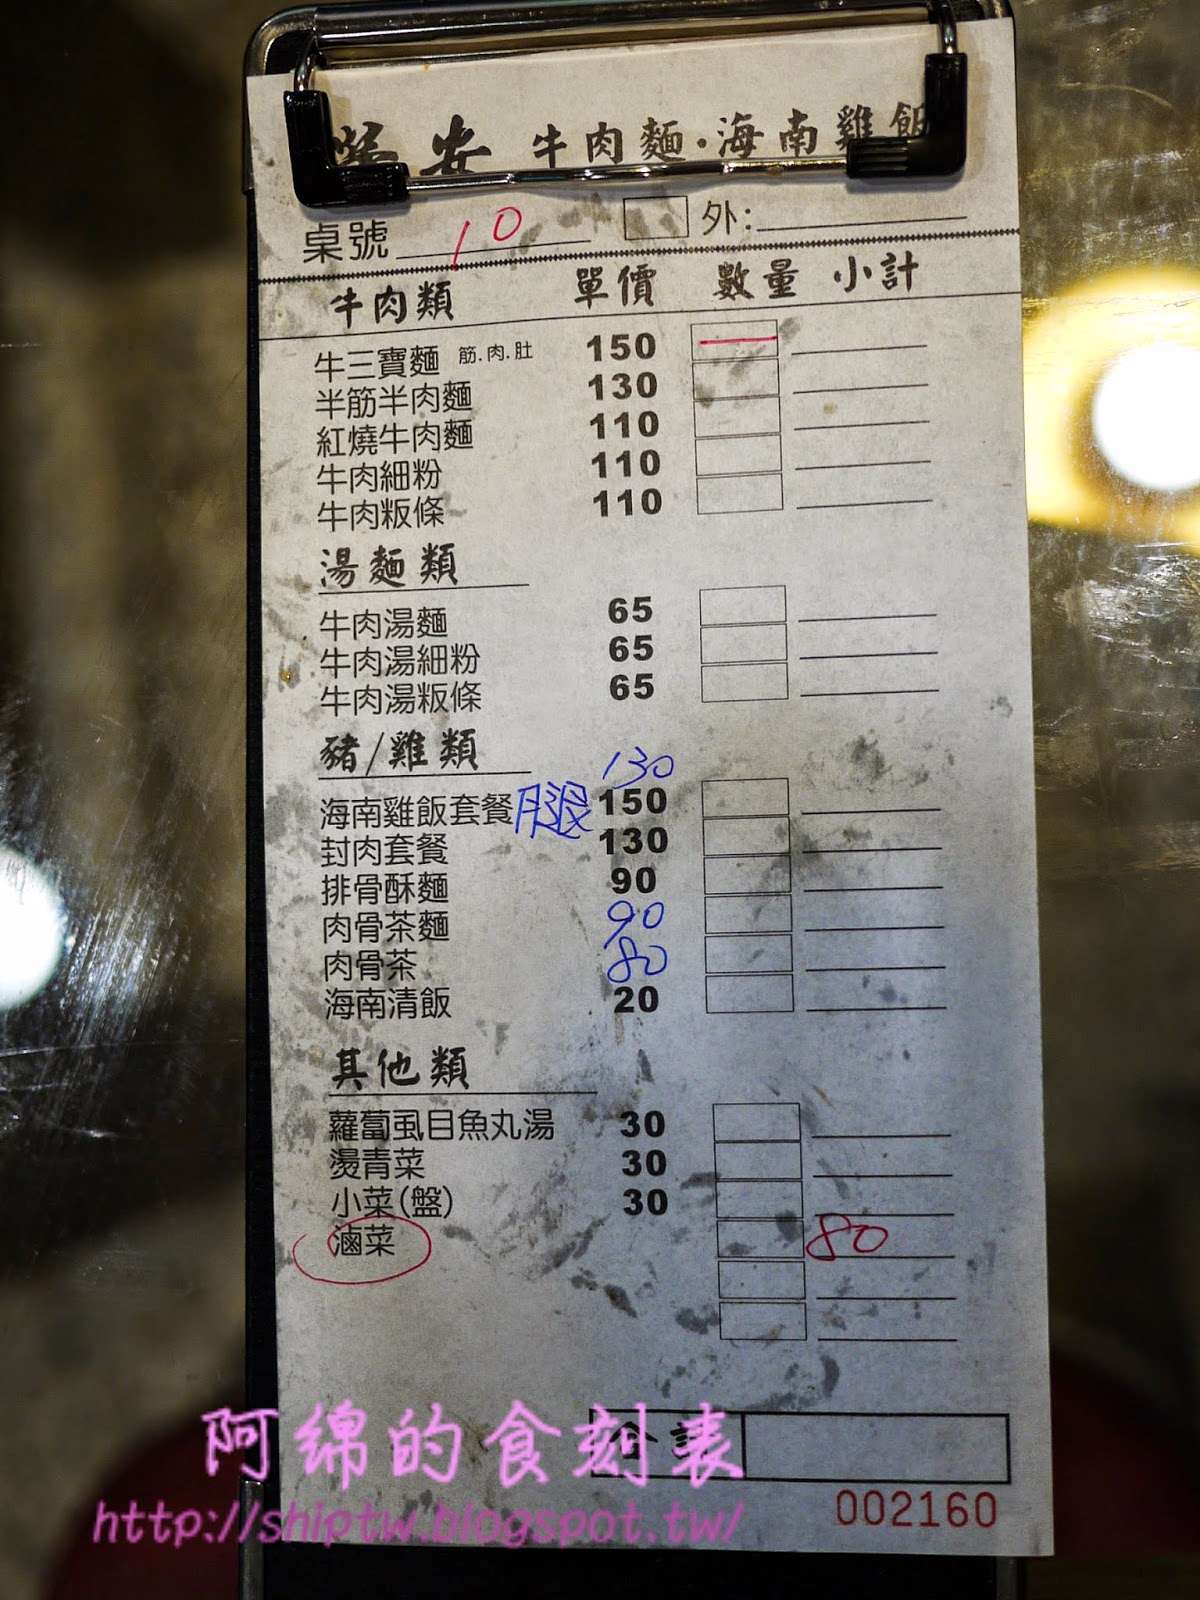 安 牛肉麵·海南雞飯
桌號 10 外:
牛肉類 單價 數量 小計
牛三寶麵 筋.肉.肚 150 一
半筋半肉麵 130
紅燒牛肉麵 110
牛肉細粉 110
牛肉粄條 110
湯麵類
牛肉湯麵 65
牛肉湯細粉 65
牛肉湯粄條 65
豬/雞類
130
海南雞飯套餐 腿 150
封肉套餐 130
排骨酥麵 90
肉骨茶麵 90
肉骨茶 80
海南清飯 20
其他類
蘿蔔虱目魚丸湯 30
燙青菜 30
小菜(盤) 30
滷菜 80
合計
阿綿的食刻表
002160
http://shiptw.blogspot.tw/